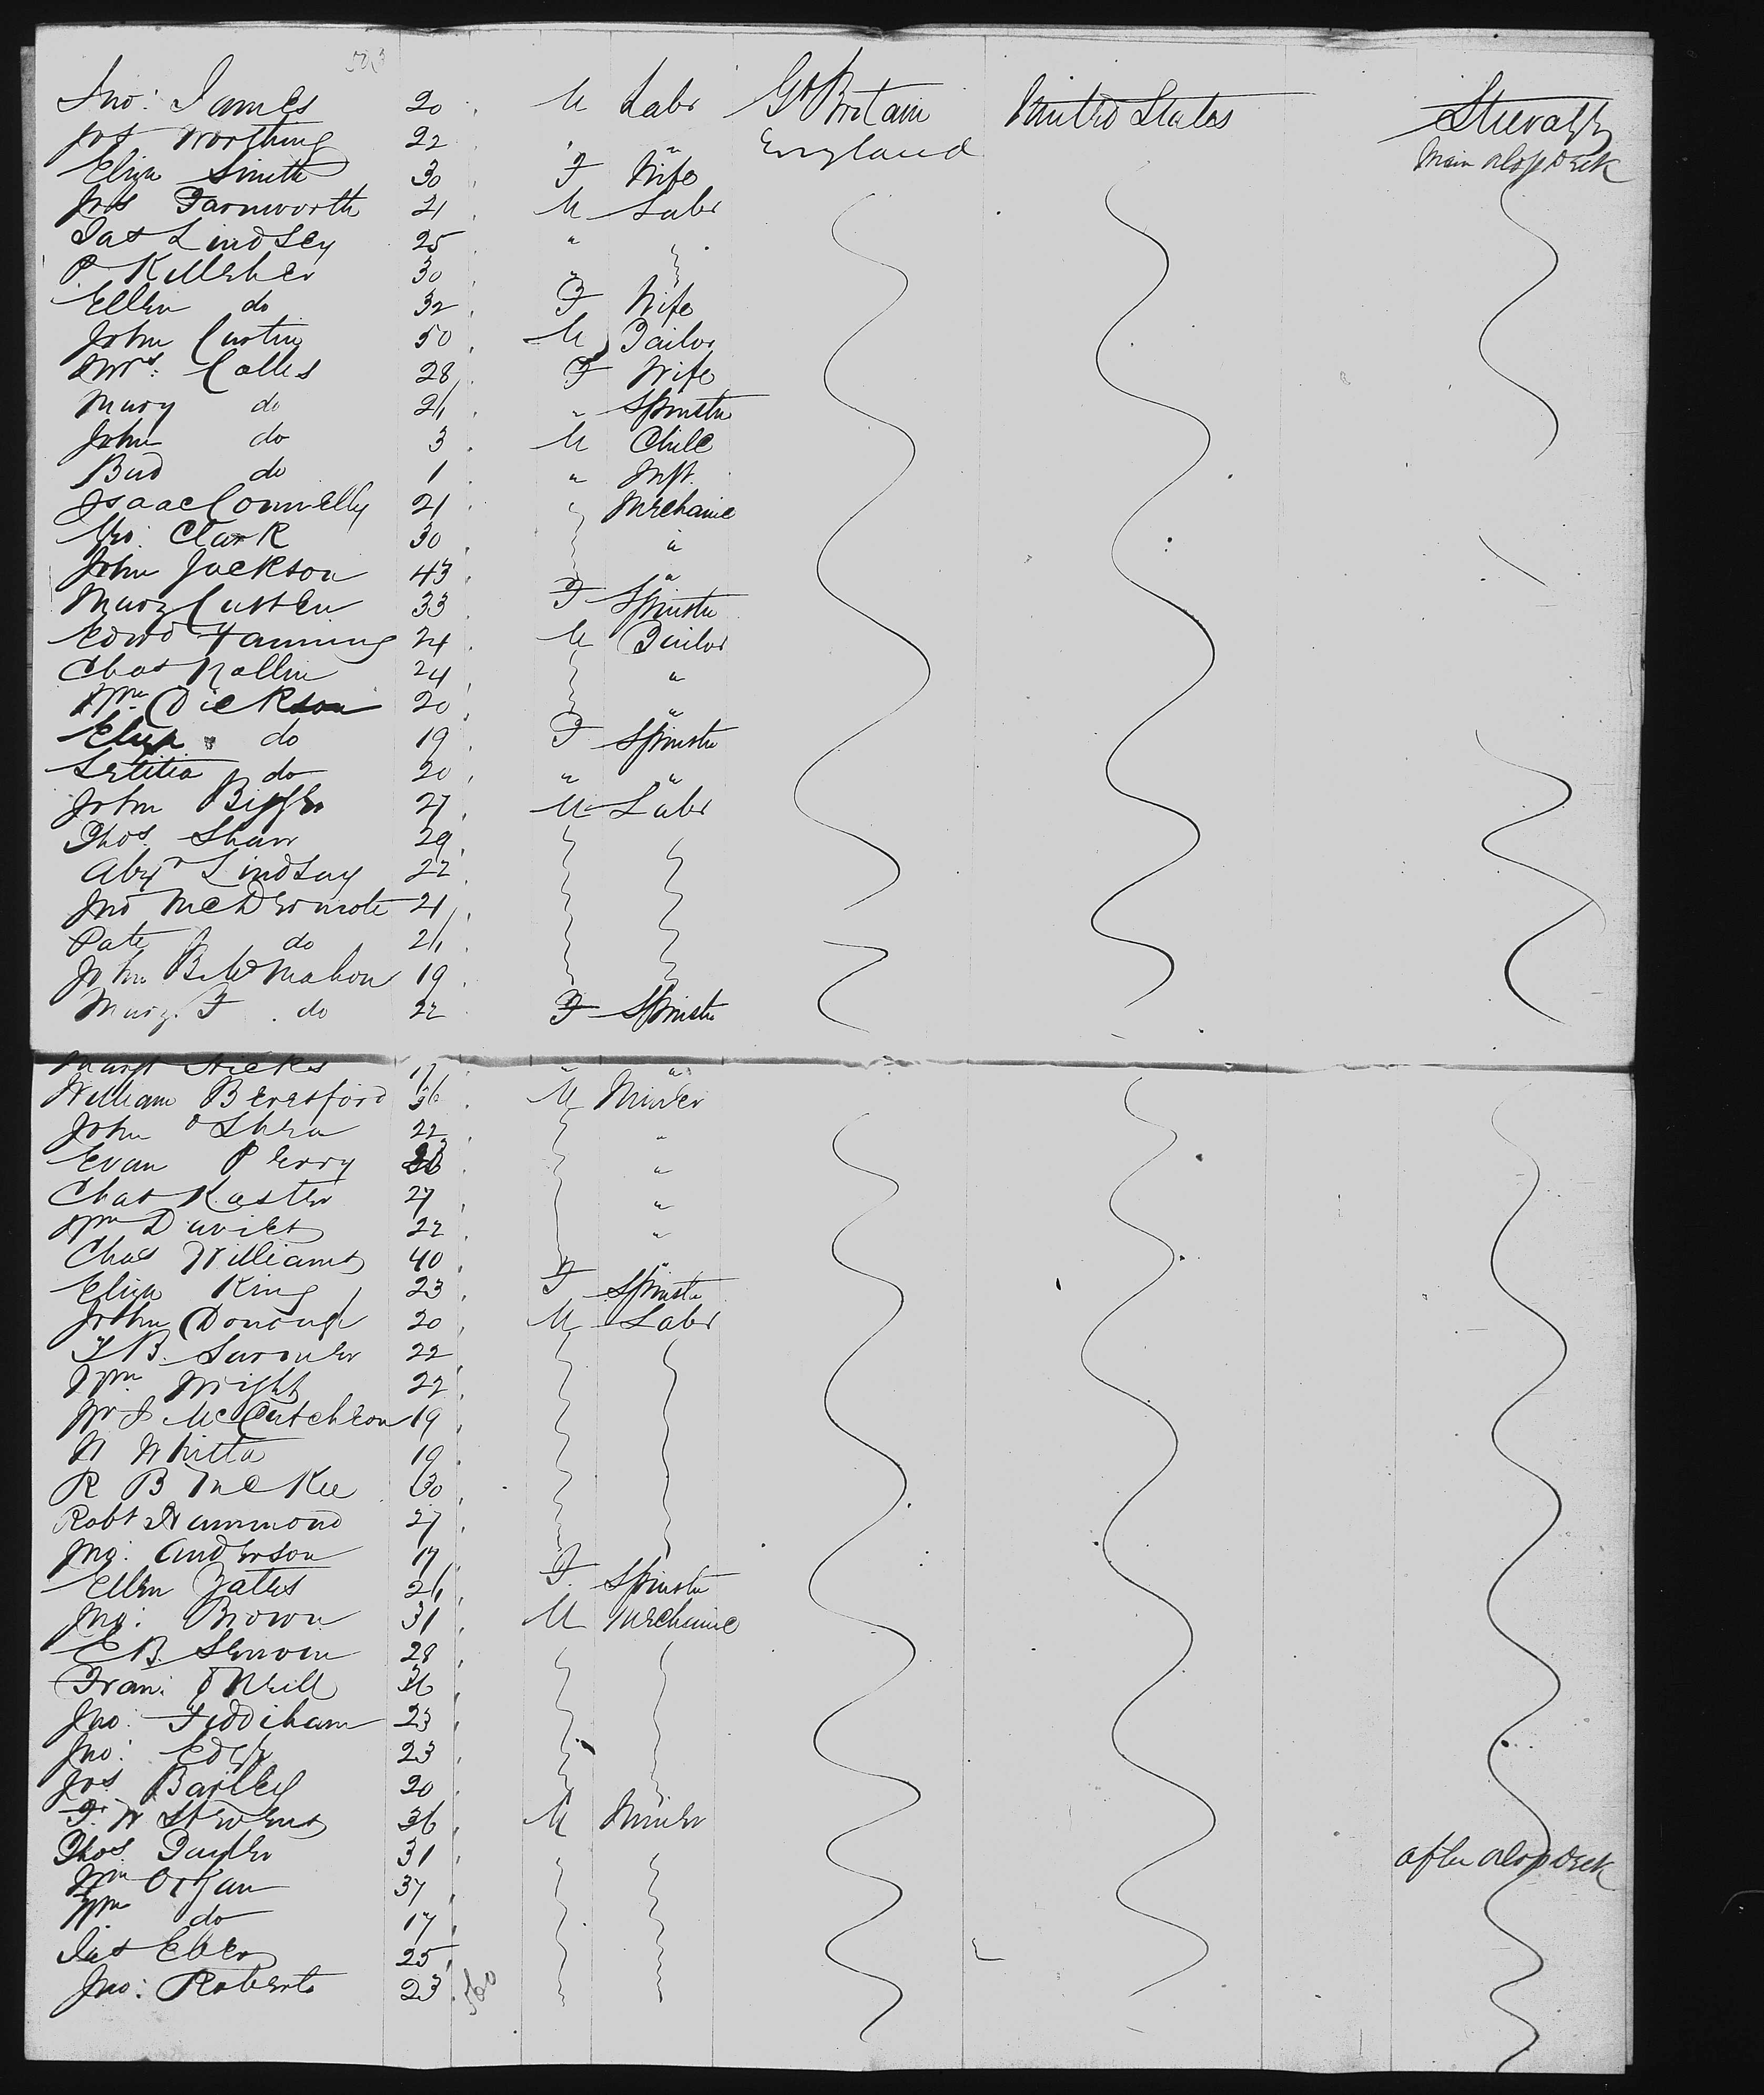 503
Jno: James 20 M Labr Gt Britain United States Steerage
Jos Worthing 22 " " England Main Orlop Deck
Eliza Smith 30 F Wife
Jas Farnworth 21 M Labr
Jas Lindsey 25 "
P. Kelleher 30 "
Ellen do 32 F Wife
John Curtin 50 M Tailor
Mrs: Calles 28 F Wife
Mary do 21 " Spinster
John do 3 M Child
Bird do 1 " Inft.
Isaac Connelly 21 " Mechanic
Geo: Clark 30 "
John Jackson 43 "
Mary Custen 33 F Spinster
Edwd Fanning 24 M Tailor
Chas Nallin 24 "
Wm Dickson 20 "
Eliza do 19 F Spinster
Letitia do 20 " "
John 27 M Labr
Thos. Shaw 29
Alexr Lindsay 22
Jno McDermott 21
Patr do 21
John B. McMahon 19
Mary. F do 22 F Spinster
Margt Hicks 17 " "
William Beresford 36 M Miner
John O'Shea 22 "
Evan Perry "
Chas Kaster 27 "
Wm Davies 22 "
Chas Williams 40 "
Eliza King 23 F Spinster
John Donough 20 M Labr
B. 22
Wm Wright 22
W J McCutcheon 19
W Whitta 19
R B McKee 30
Robt Hammond 27
Jno: Anderson 17
Ellen Yates 21 F Spinster
Jno: Brown 31 M Mechanic
E B. 28
Fran: O'Neill 36
Jno: Fiddiham 23
Jno: Edge 23
Jos Bailey 20
F. W Stevens 36 M Miner
Thos. Taylor 31 After Orlop Deck
Wm Organ 37
Wm do 17
Jas Eber 25
Jno: Roberts 23 560